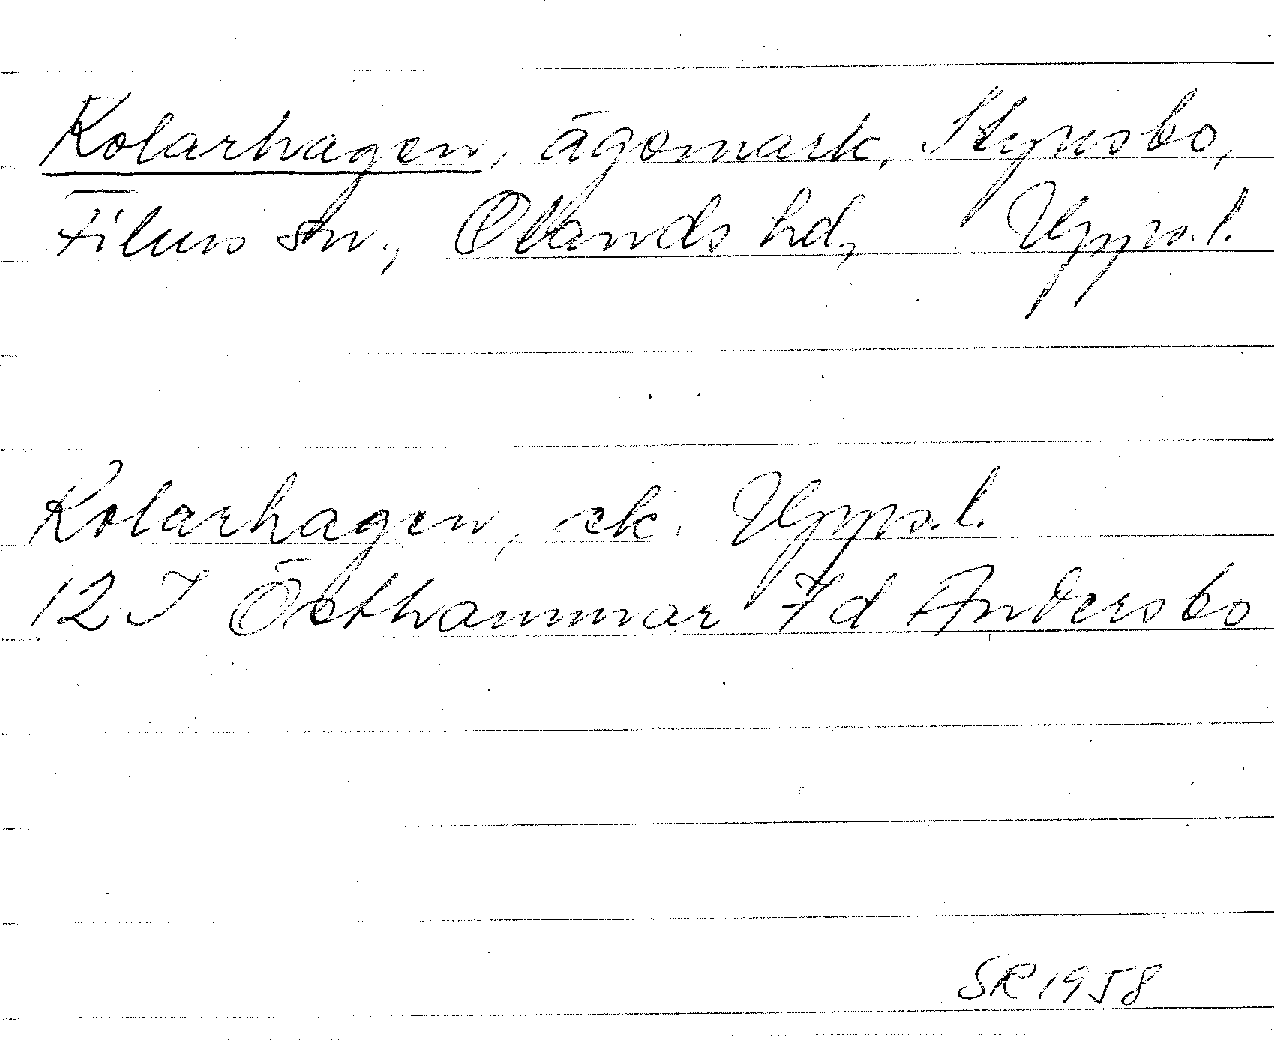 Kolarhagen, ägomark, Styrsbo,
Films sn., Olands hd, Upps.l.
Kolarhagen, ek. Upps.l.
12I Östhammar 7d Andersbo
SR 1958